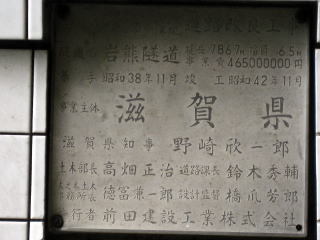 道路改良工
岩熊隧道 延長786.7m 幅員6.5m
事業費465000000円
着手 昭和38年11月 竣工 昭和42年11月
事業主体 滋賀県
滋賀県知事 野崎欣一郎
土木部長 高畑正治 道路課長 鈴木秀輔
木之本土木事務所長 徳冨兼一郎 設計監督 橋爪芳郎
行者 前田建設工業株式会社